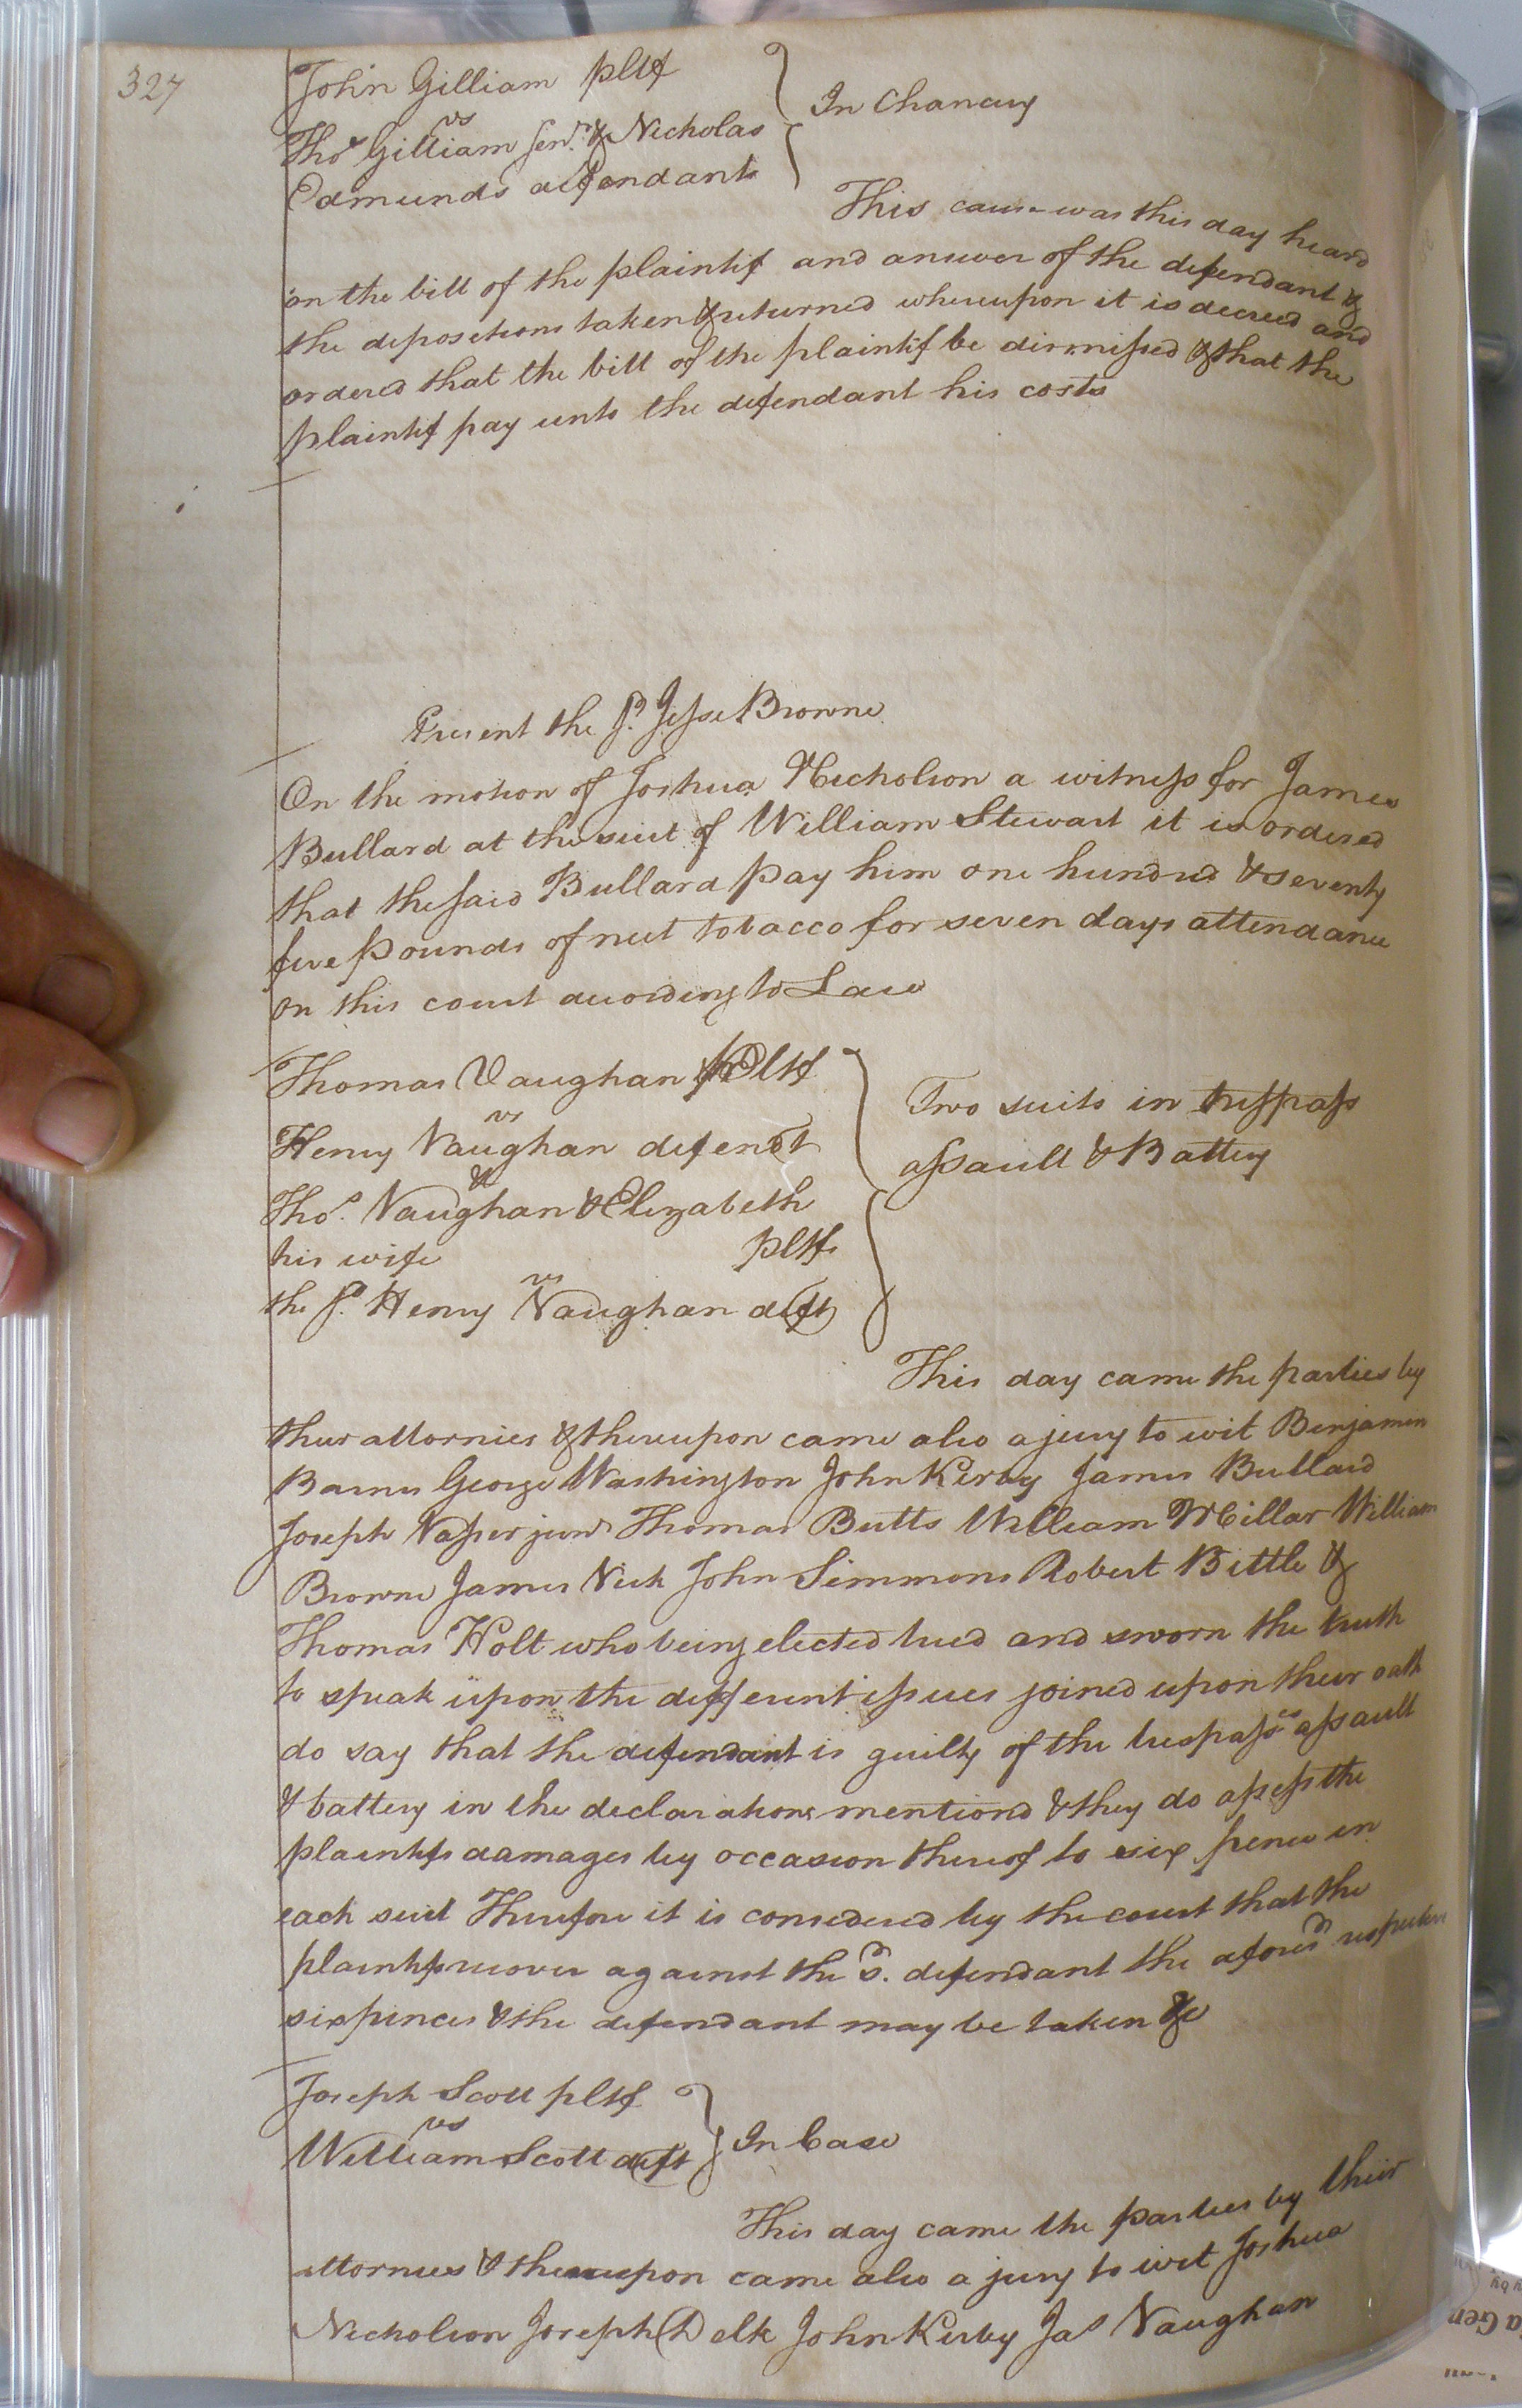 327
John Gilliam pltf
vs
Thos Gilliam senr. & Nicholas
Edmunds defendants
In Chancery
This cause was this day heard
on the bill of the plaintif and answer of the defendant &
the depositions taken & returned whereupon it is decreed and
ordered that the bill of the plaintif be dismissed & that the
plaintif pay unto the defendant his costs
Present the sd. Jesse Browne
On the motion of Joshua Nicholson a witness for James
Bullard at the suit of William Stewart it is ordered
that the said Bullard pay him one hundred & seventy
five pounds of neet tobacco for seven days attendance
on this court according to Law
Thomas Vaughan Pltf
vs
Henry Vaughan defendt
&
Thos. Vaughan & Elizabeth
his wife pltfs
vs
the sd. Henry Vaughan deft
Two suits in tresspass
assault & Battery
This day came the parties by
their attornies & thereupon came also a jury to wit Benjamin
Barns George Washington John Kirby James Bullard
Joseph Vasser junr Thomas Butts William Millar William
Browne James Vick John Simmons Robert Bittle &
Thomas Holt who being elected tried and sworn the truth
to speak upon the different issues joined upon their oath
do say that the defendant is guilty of the trespasses assault
& battery in the declarations mentiond & they do assess the
plaintifs damages by occasion thereof to six pence in
each suit Therefore it is considered by the court that the
plaintifs recover against the sd. defendant the aforesd respective
sixpences & the defendant may be taken &c
Joseph Scott pltf
vs
William Scott deft
In Case
This day came the parties by their
attornies & thereupon came also a jury to wit Joshua
Nicholson Joseph Delk John Kirby Jas Vaughan
a Gen